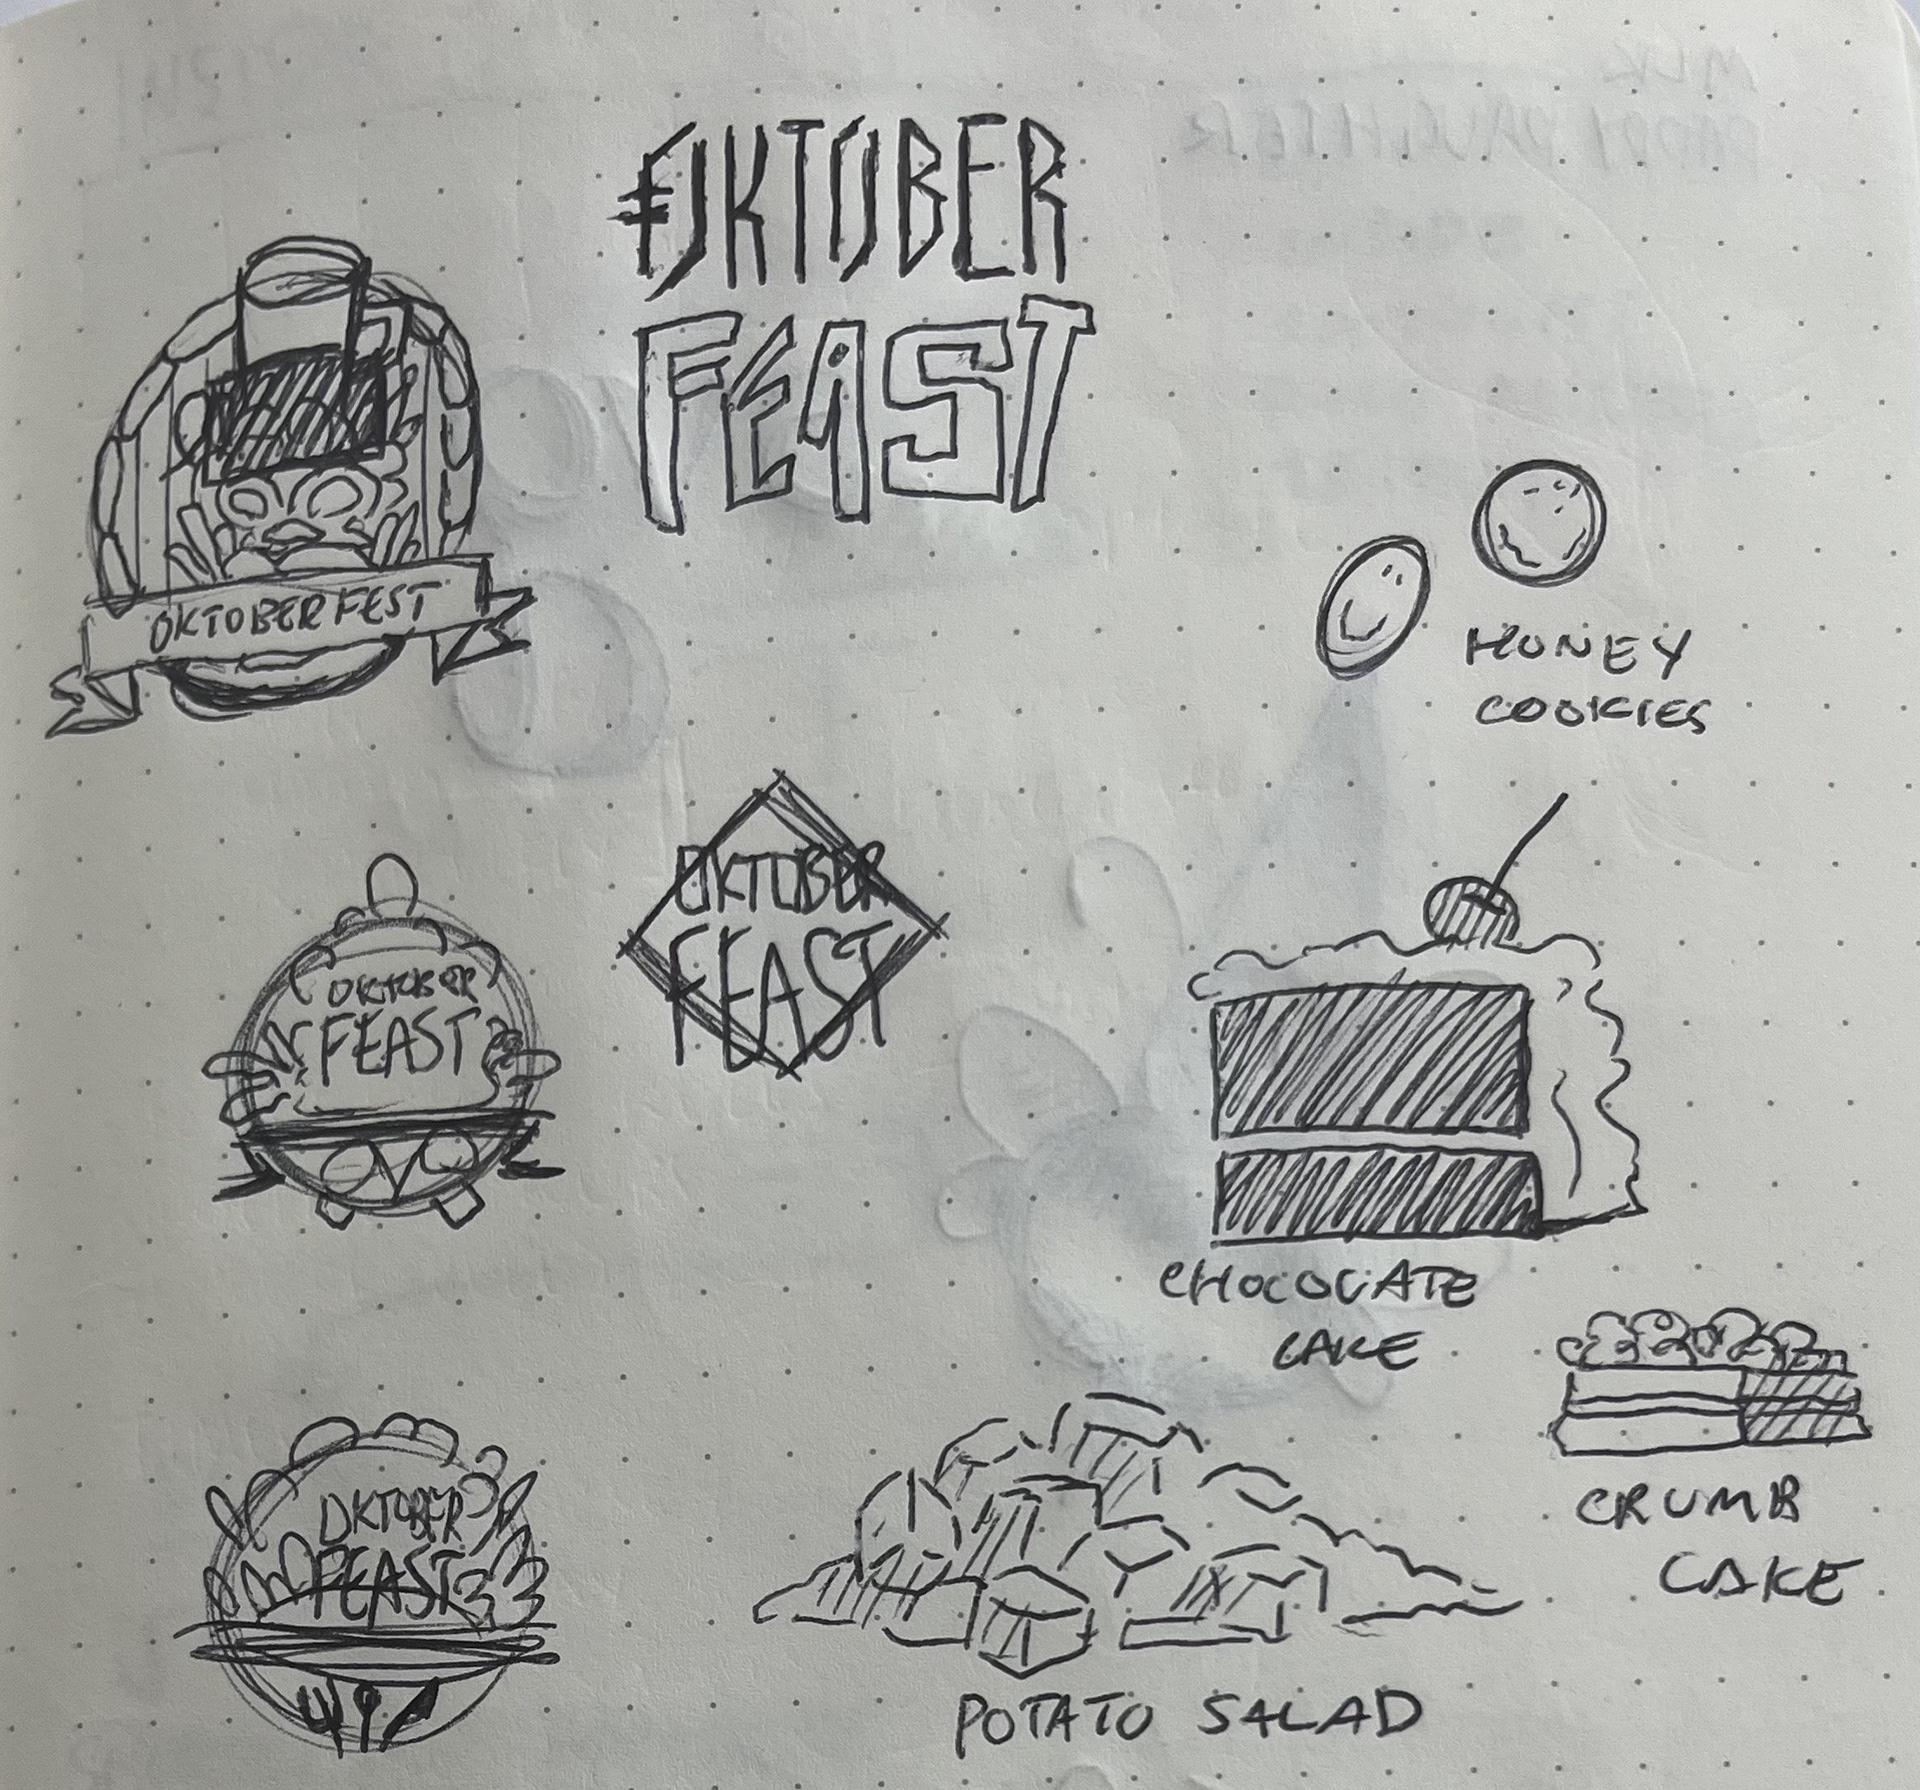 OKTOBER
FEAST
OKTOBERFEST
HONEY
COOKIES
OKTOBER
FEAST
OKTOBER
FEAST
CHOCOLATE
CAKE
CRUMB
CAKE
OKTOBER
FEAST
POTATO SALAD